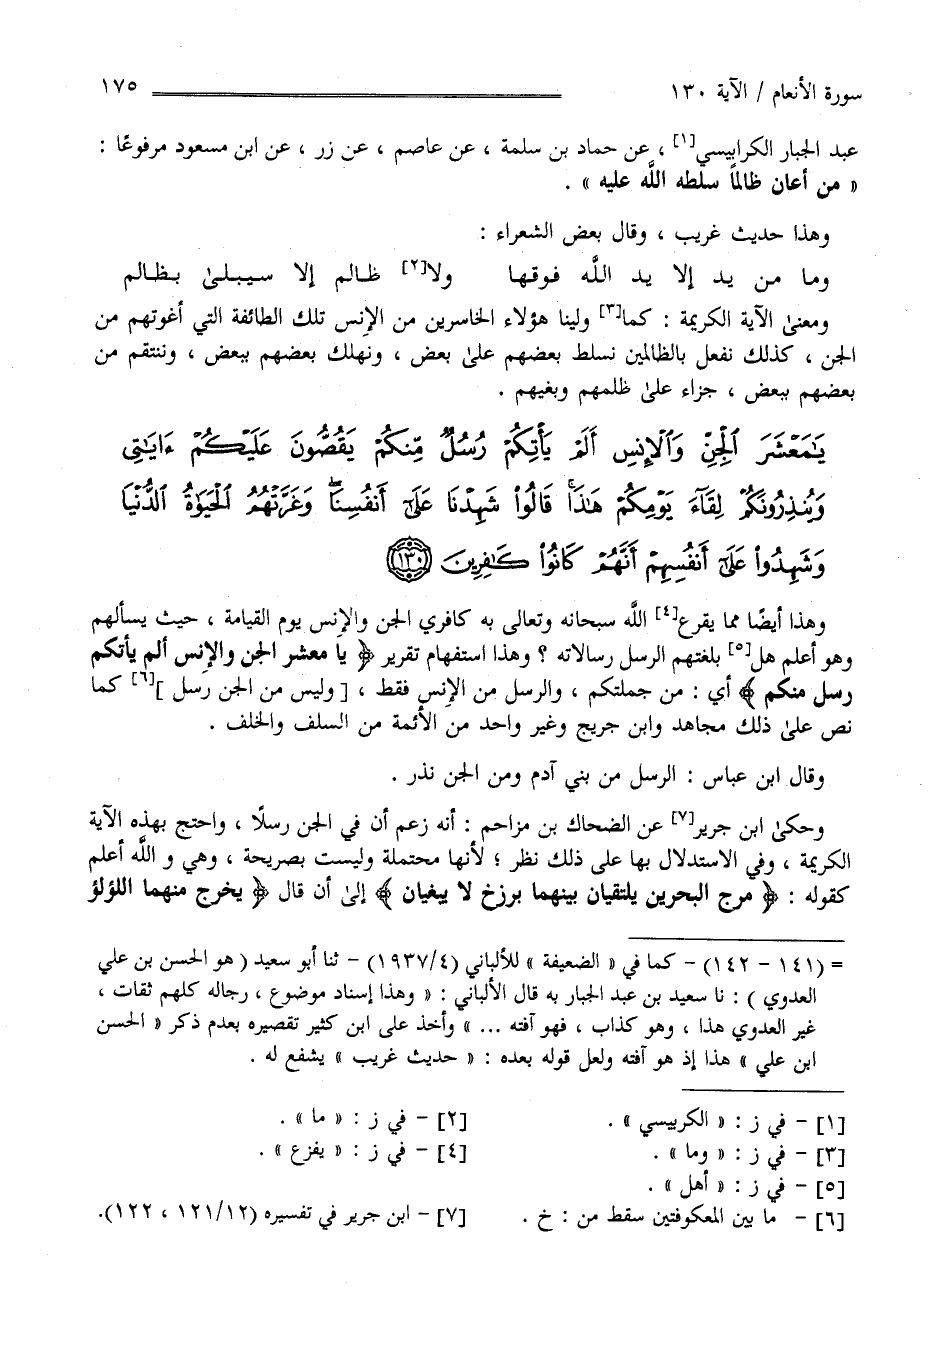 سورة الأنعام / الآية ١٣٠ ١٧٥
عبد الجبار الكرابيسي[١] ، عن حماد بن سلمة ، عن عاصم ، عن زر ، عن ابن مسعود مرفوعًا :
« من أعان ظالمًا سلطه اللَّه عليه » .
وهذا حديث غريب ، وقال بعض الشعراء :
وما من يد إلا يد اللَّه فوقها ولا[٢] ظالم إلا سيبلىٰ بظالم
ومعنىٰ الآية الكريمة : كما[٣] ولينا هؤلاء الخاسرين من الإنس تلك الطائفة التي أغوتهم من
الجن ، كذلك نفعل بالظالمين نسلط بعضهم علىٰ بعض ، ونهلك بعضهم ببعض ، وننتقم من
بعضهم ببعض ، جزاء علىٰ ظلمهم وبغيهم .
يَٰمَعْشَرَ ٱلْجِنِّ وَٱلْإِنسِ أَلَمْ يَأْتِكُمْ رُسُلٌ مِّنكُمْ يَقُصُّونَ عَلَيْكُمْ ءَايَٰتِى
وَيُنذِرُونَكُمْ لِقَآءَ يَوْمِكُمْ هَٰذَا ۚ قَالُوا۟ شَهِدْنَا عَلَىٰٓ أَنفُسِنَا ۖ وَغَرَّتْهُمُ ٱلْحَيَوٰةُ ٱلدُّنْيَا
وَشَهِدُوا۟ عَلَىٰٓ أَنفُسِهِمْ أَنَّهُمْ كَانُوا۟ كَٰفِرِينَ ١٣٠
وهذا أيضًا مما يقرع[٤] اللَّه سبحانه وتعالى به كافري الجن والإنس يوم القيامة ، حيث يسألهم
وهو أعلم هل[٥] بلغتهم الرسل رسالاته ؟ وهذا استفهام تقرير ﴿ يا معشر الجن والإنس ألم يأتكم
رسل منكم ﴾ أي : من جملتكم ، والرسل من الإنس فقط ، [ وليس من الجن رسل ][٦] كما
نص علىٰ ذلك مجاهد وابن جريج وغير واحد من الأئمة من السلف والخلف .
وقال ابن عباس : الرسل من بني آدم ومن الجن نذر .
وحكىٰ ابن جرير[٧] عن الضحاك بن مزاحم : أنه زعم أن في الجن رسلًا ، واحتج بهذه الآية
الكريمة ، وفي الاستدلال بها على ذلك نظر ؛ لأنها محتملة وليست بصريحة ، وهي و اللَّه أعلم
كقوله : ﴿ مرج البحرين يلتقيان بينهما برزخ لا يبغيان ﴾ إلىٰ أن قال ﴿ يخرج منهما اللؤلؤ
= (١٤١ – ١٤٢) – كما في « الضعيفة » للألباني (١٩٣٧/٤) – ثنا أبو سعيد ( هو الحسن بن علي
العدوي ) : نا سعيد بن عبد الجبار به قال الألباني : « وهذا إسناد موضوع ، رجاله كلهم ثقات ،
غير العدوي هذا ، وهو كذاب ، فهو آفته ... » وأخذ على ابن كثير تقصيره بعدم ذكر « الحسن
ابن علي » هذا إذ هو آفته ولعل قوله بعده : « حديث غريب » يشفع له .
[١] – في ز : « الكربيسي » . [٢] – في ز : « ما » .
[٣] – في ز : « وما » . [٤] – في ز : « يفزع » .
[٥] – في ز : « أهل » .
[٦] – ما بين المعكوفتين سقط من : خ . [٧] – ابن جرير في تفسيره (١٢١/١٢ ، ١٢٢).